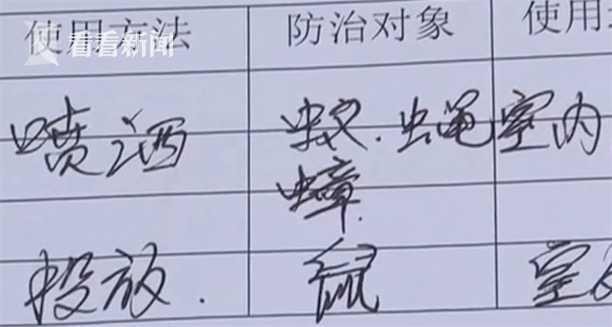 使用方法 防治对象 使用
看看新闻
喷洒 蚊.蝇室内
蟑
投放. 鼠 室